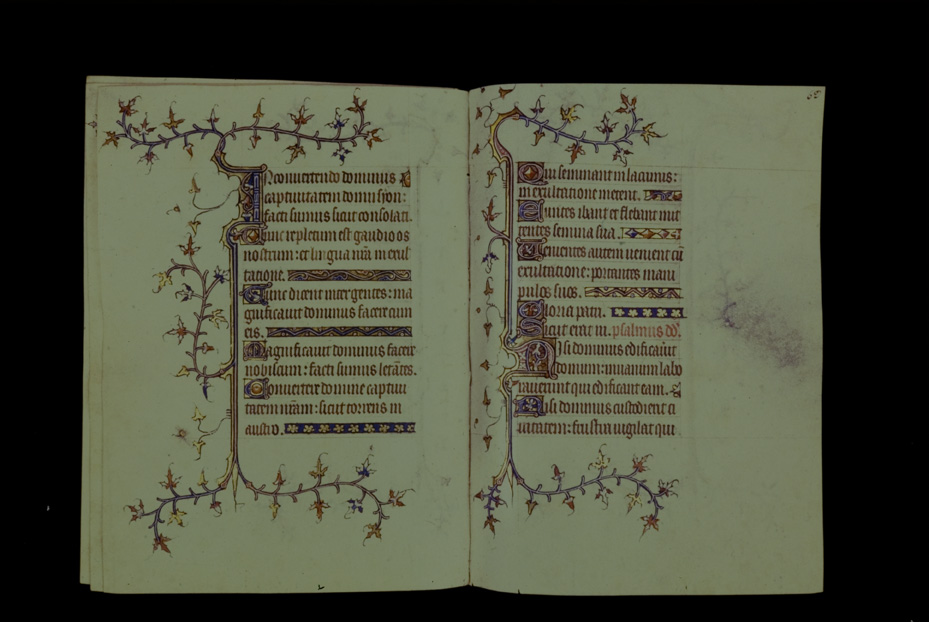 In convertendo dominus
captivitatem domus syon:
facti sumus sicut consolati.
Tunc repletum est gaudio os
nostrum: et lingua nr̄a in exul
tatione.
Tunc dicent inter gentes: ma
gnificavit dominus facere cum
eis.
Magnificavit dominus facere
nobiscum: facti sumus letātes.
Convertere domine captivi
tatem nr̄am: sicut torrens in
austro.
Qui seminant in lacrimis:
in exultatione metent.
Euntes ibant et flebant mit
tentes semina sua.
Venientes autem venient cū
exultatione: portantes mani
pulos suos.
Gloria patri.
Sicut erat in. psalmus dd̄.
Nisi dominus edificaverit
domum: in vanum labo
raverunt qui edificant eam.
Nisi dominus custodierit ci
vitatem: frustra vigilat qui